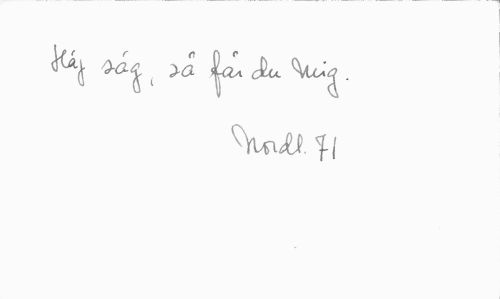 Håj såg, så får du mig.
Nordl. 71